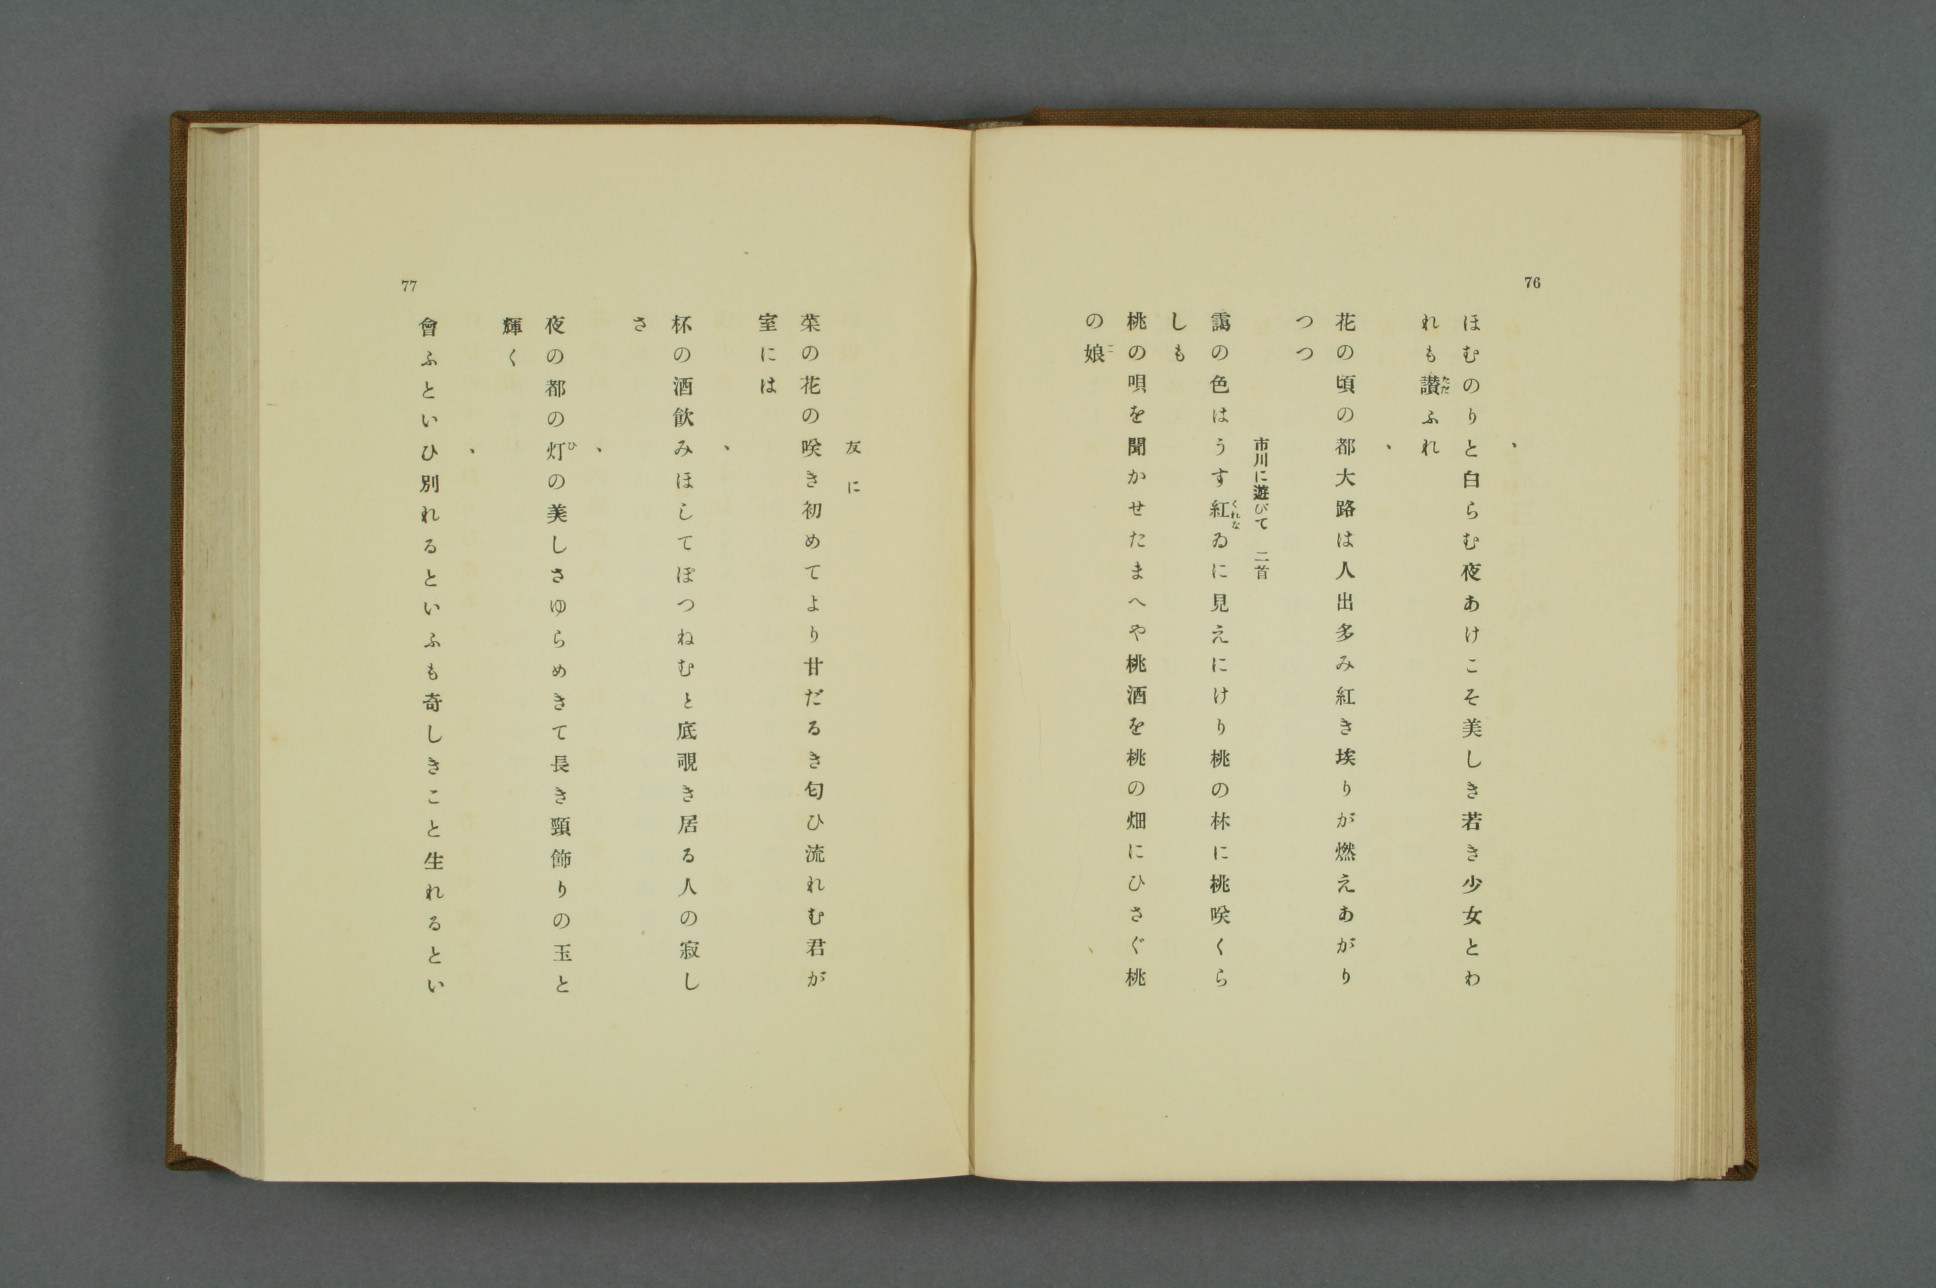 76
、
ほむのりと白らむ夜あけこそ美しき若き少女とわ
れも讃ふれ
、
花の頃の都大路は人出多み紅き埃りが燃えあがり
つつ
市川に遊びて　二首
靄の色はうす紅ゐに見えにけり桃の林に桃咲くら
しも
桃の唄を聞かせたまへや桃酒を桃の畑にひさぐ桃
の娘
友に
菜の花の咲き初めてより甘だるき匂ひ流れむ君が
室には
、
杯の酒飮みほしてぽつねむと底覗き居る人の寂し
さ
、
夜の都の灯の美しさゆらめきて長き頸飾りの玉と
輝く
、
會ふといひ別れるといふも奇しきこと生れるとい
77